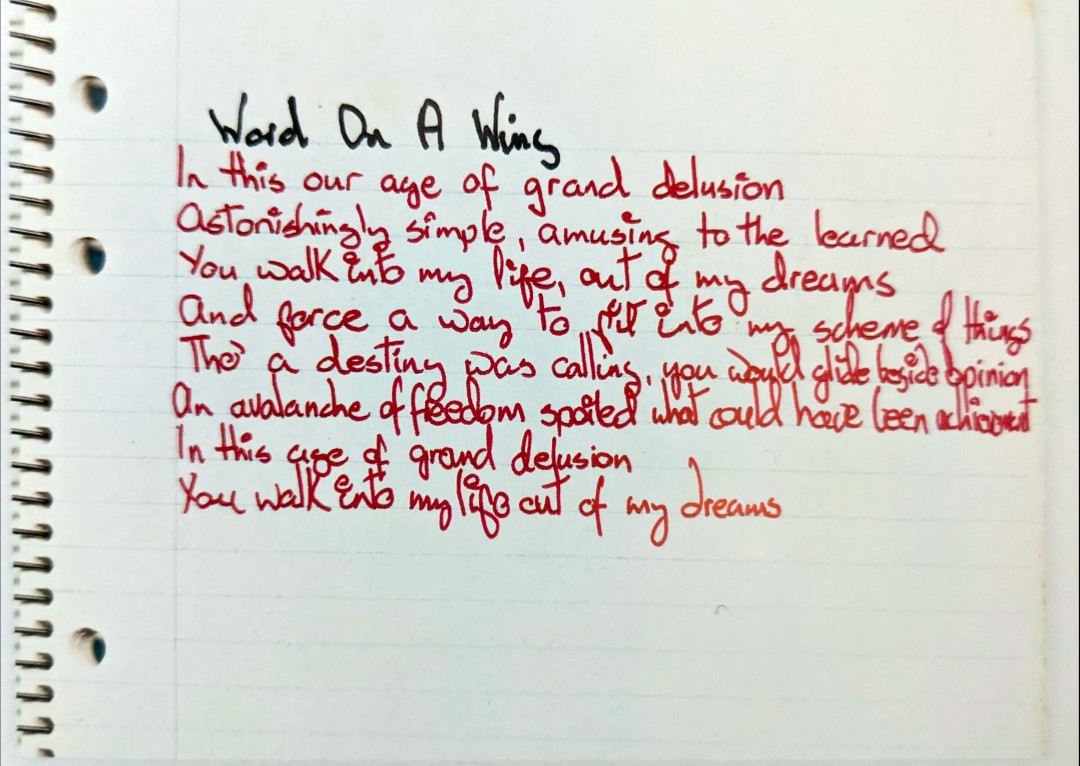 Word On A Wing
In this our age of grand delusion
Astonishingly simple, amusing to the learned
You walk into my life, out of my dreams
And force a way to fit into my scheme of things
Tho' a destiny was calling, you would glide beside opinion
An avalanche of freedom spoiled what could have been achievement
In this age of grand delusion
You walk into my life out of my dreams